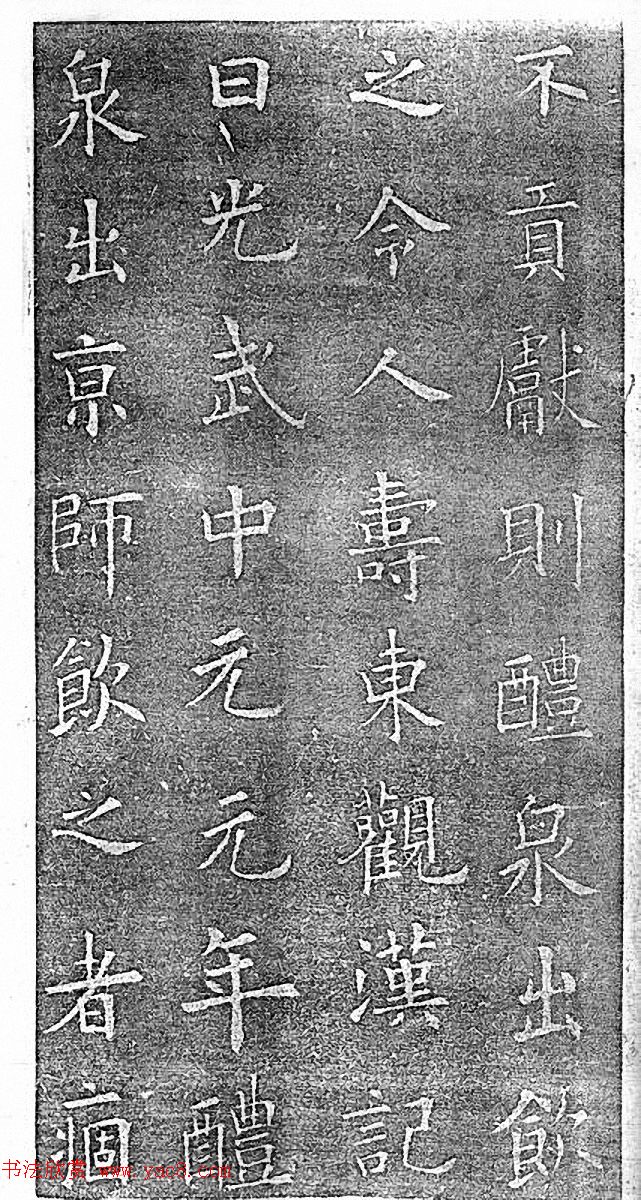 不貢獻則醴泉出飲
之令人壽東觀漢記
曰光武中元元年醴
泉出京師飲之者痼
书法欣赏 www.yac8.com